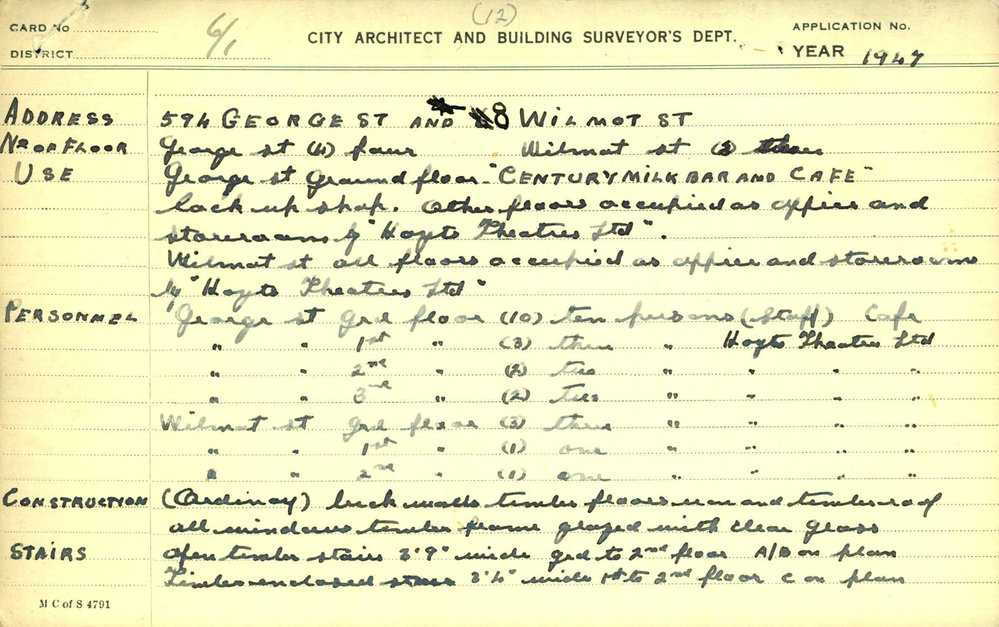 (12)
CARD No 6/1 CITY ARCHITECT AND BUILDING SURVEYOR'S DEPT. APPLICATION No.
DISTRICT YEAR 1947
ADDRESS 594 GEORGE ST AND 8 WILMOT ST
No OF FLOOR George st (4) four Wilmot st (3) three
USE George st Ground floor "CENTURY MILK BAR AND CAFE"
lock up shop. Other floors occupied as office and
storerooms by "Hoyts Theatres Ltd".
Wilmot st all floors occupied as office and storerooms
by "Hoyts Theatres Ltd"
PERSONNEL George st grd floor (10) ten persons (staff) Cafe
" " 1st " (3) three " Hoyts Theatres Ltd
" " 2nd " (2) two " " " "
" " 3rd " (2) two " " " "
Wilmot st grd floor (3) three " " " "
" " 1st " (1) one " " " "
" " 2nd " (1) one " " " "
CONSTRUCTION (Ordinary) brick walls timber floors iron and timber roof
all windows timber frame glazed with clear glass
STAIRS Open timber stairs 3'9" wide grd to 2nd floor A/B on plan
Timber enclosed stairs 3'4" wide 1st to 2nd floor C on plan
M C of S 4791